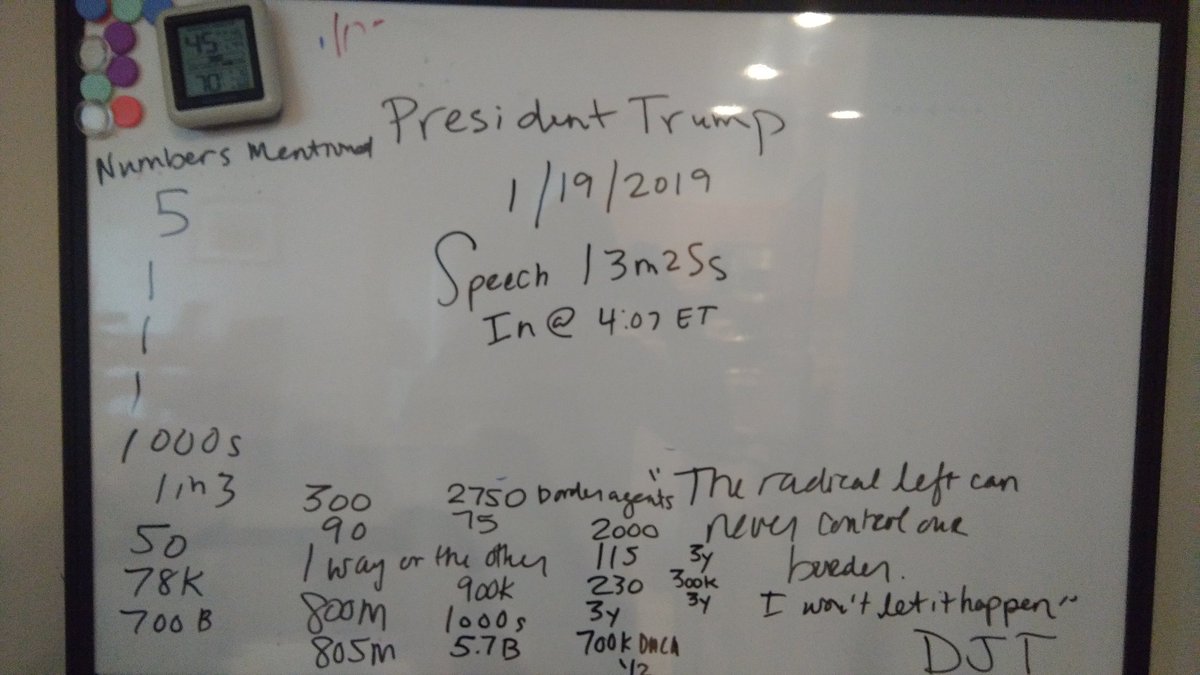 45
70
President Trump
Numbers Mentioned
1/19/2019
Speech 13m25s
In @ 4:07 ET
5
1
1
1
1000s
1 in 3
50
78K
700 B
300
90
1 way or the other
800m
805m
2750 border agents
75
900k
1000s
5.7B
2000
115
230
3y
700k DACA
1/2
3y
300k
3y
"The radical left can
never control our
border.
I won't let it happen"
DJT